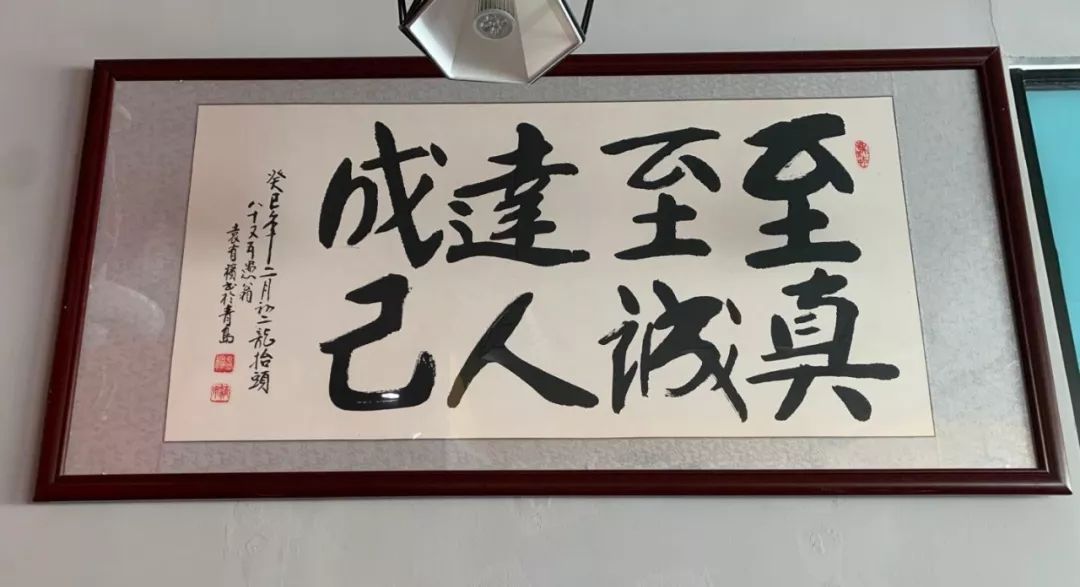 至真
至诚
達人
成己
癸巳年二月初二龍抬頭
八十又五愚翁
袁有根书於青島